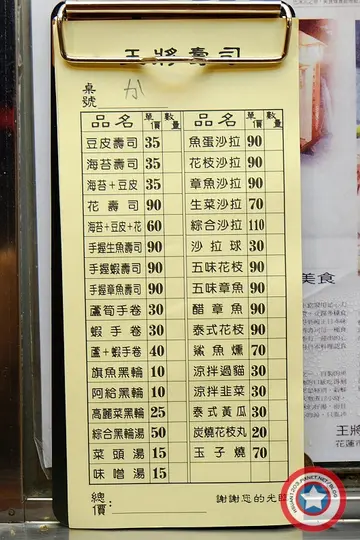 王將壽司
桌號 か
品名 單價 數量 品名 單價 數量
豆皮壽司 35 魚蛋沙拉 90
海苔壽司 35 花枝沙拉 90
海苔+豆皮 35 章魚沙拉 90
花壽司 90 生菜沙拉 70
海苔+豆皮+花 60 綜合沙拉 110
手握生魚壽司 90 沙拉球 30
手握蝦壽司 90 五味花枝 90
手握章魚壽司 90 五味章魚 90
蘆筍手卷 30 醋章魚 90
蝦手卷 30 泰式花枝 90
蘆+蝦手卷 40 鯊魚燻 70
旗魚黑輪 10 涼拌過貓 30
阿給黑輪 10 涼拌韭菜 30
高麗菜黑輪 25 泰式黃瓜 30
綜合黑輪湯 50 炭燒花枝丸 20
菜頭湯 15 玉子燒 70
味噌湯 15
總價: 謝謝您的光臨
美食
王將
花蓮